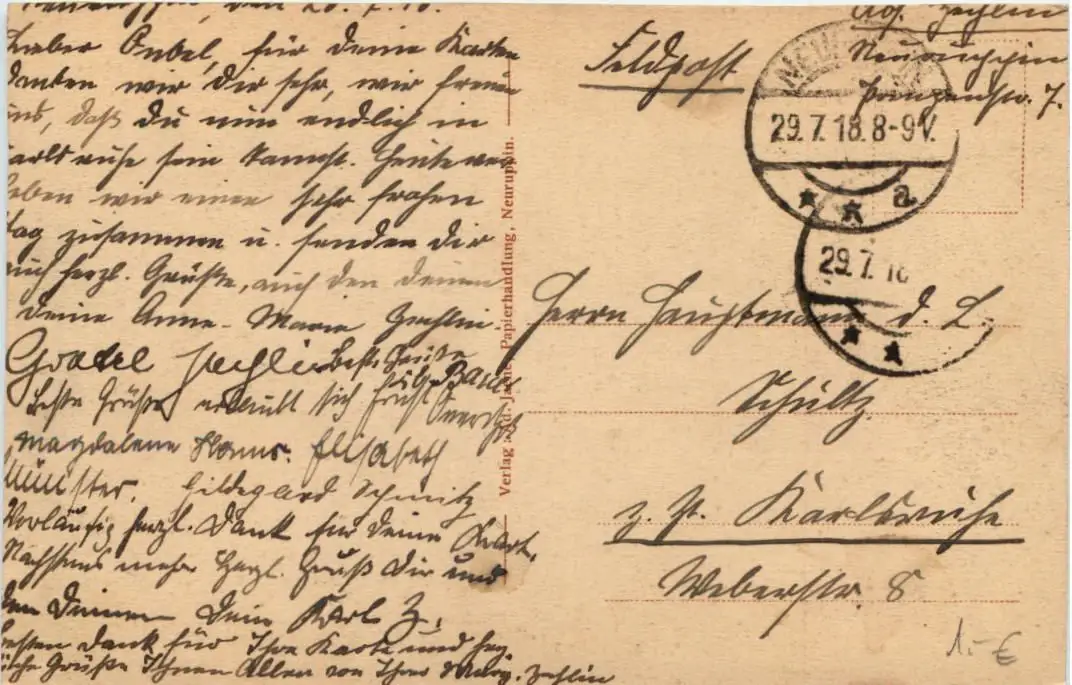 Neuruppin, den 28.7.18.
Lieber Onkel, für Deine Karten
danken wir Dir sehr, wir freuen
uns, daß Du nun endlich in
Karlsruhe sein kannst. Heute
haben wir einen sehr frohen
Tag zusammen u. senden Dir
auch herzl. Grüße, auch den Deinen
Deine Anne-Marie Zechlin.
Gretel Zechlin Beste Grüße
Beste Grüße erlaubt sich
Magdalene Elisabeth
Münster. Hildegard Schmitz
Vorläufig herzl. Dank für Deine Karte.
Nächstens mehr Herzl. Gruß Dir und
den Deinen Dein Karl Z.
Besten Dank für Ihre Karte und herz-
liche Grüße Ihnen Allen von Ihrer Marg. Zechlin
Verlag: Papierhandlung, Neuruppin.
Feldpost
Zechlin
Neuruppin
7.
NEU
29.7.18.8-9V.
a
29.7.18
Herrn Hauptmann d. L.
Schultz
z. Zt. Karlsruhe
Weberstr. 8
1.- €